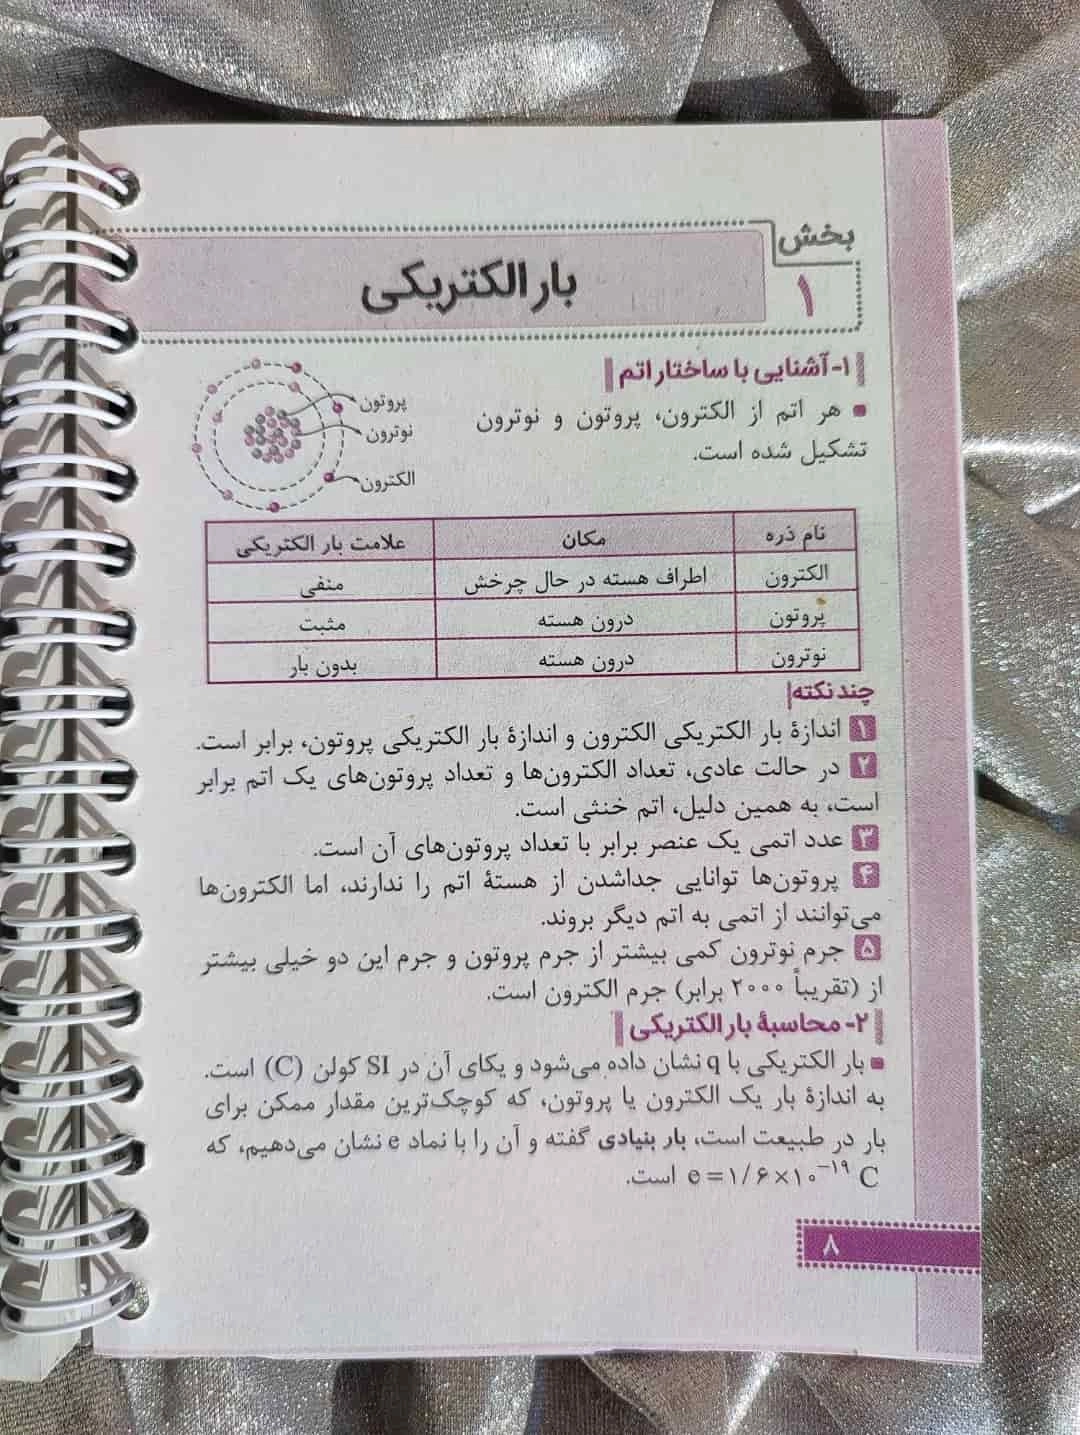 بخش
۱
بار الکتریکی
۱- آشنایی با ساختار اتم
■ هر اتم از الکترون، پروتون و نوترون
تشکیل شده است.
پروتون
نوترون
الکترون
نام ذره مکان علامت بار الکتریکی
الکترون اطراف هسته در حال چرخش منفی
پروتون درون هسته مثبت
نوترون درون هسته بدون بار
چند نکته
۱ اندازهٔ بار الکتریکی الکترون و اندازهٔ بار الکتریکی پروتون، برابر است.
۲ در حالت عادی، تعداد الکترون‌ها و تعداد پروتون‌های یک اتم برابر
است، به همین دلیل، اتم خنثی است.
۳ عدد اتمی یک عنصر برابر با تعداد پروتون‌های آن است.
۴ پروتون‌ها توانایی جداشدن از هستهٔ اتم را ندارند، اما الکترون‌ها
می‌توانند از اتمی به اتم دیگر بروند.
۵ جرم نوترون کمی بیشتر از جرم پروتون و جرم این دو خیلی بیشتر
از (تقریباً ۲۰۰۰ برابر) جرم الکترون است.
۲- محاسبهٔ بار الکتریکی
■ بار الکتریکی با q نشان داده می‌شود و یکای آن در SI کولن (C) است.
به اندازهٔ بار یک الکترون یا پروتون، که کوچک‌ترین مقدار ممکن برای
بار در طبیعت است، بار بنیادی گفته و آن را با نماد e نشان می‌دهیم، که
e = ۱/۶ × ۱۰⁻¹⁹ C است.
۸